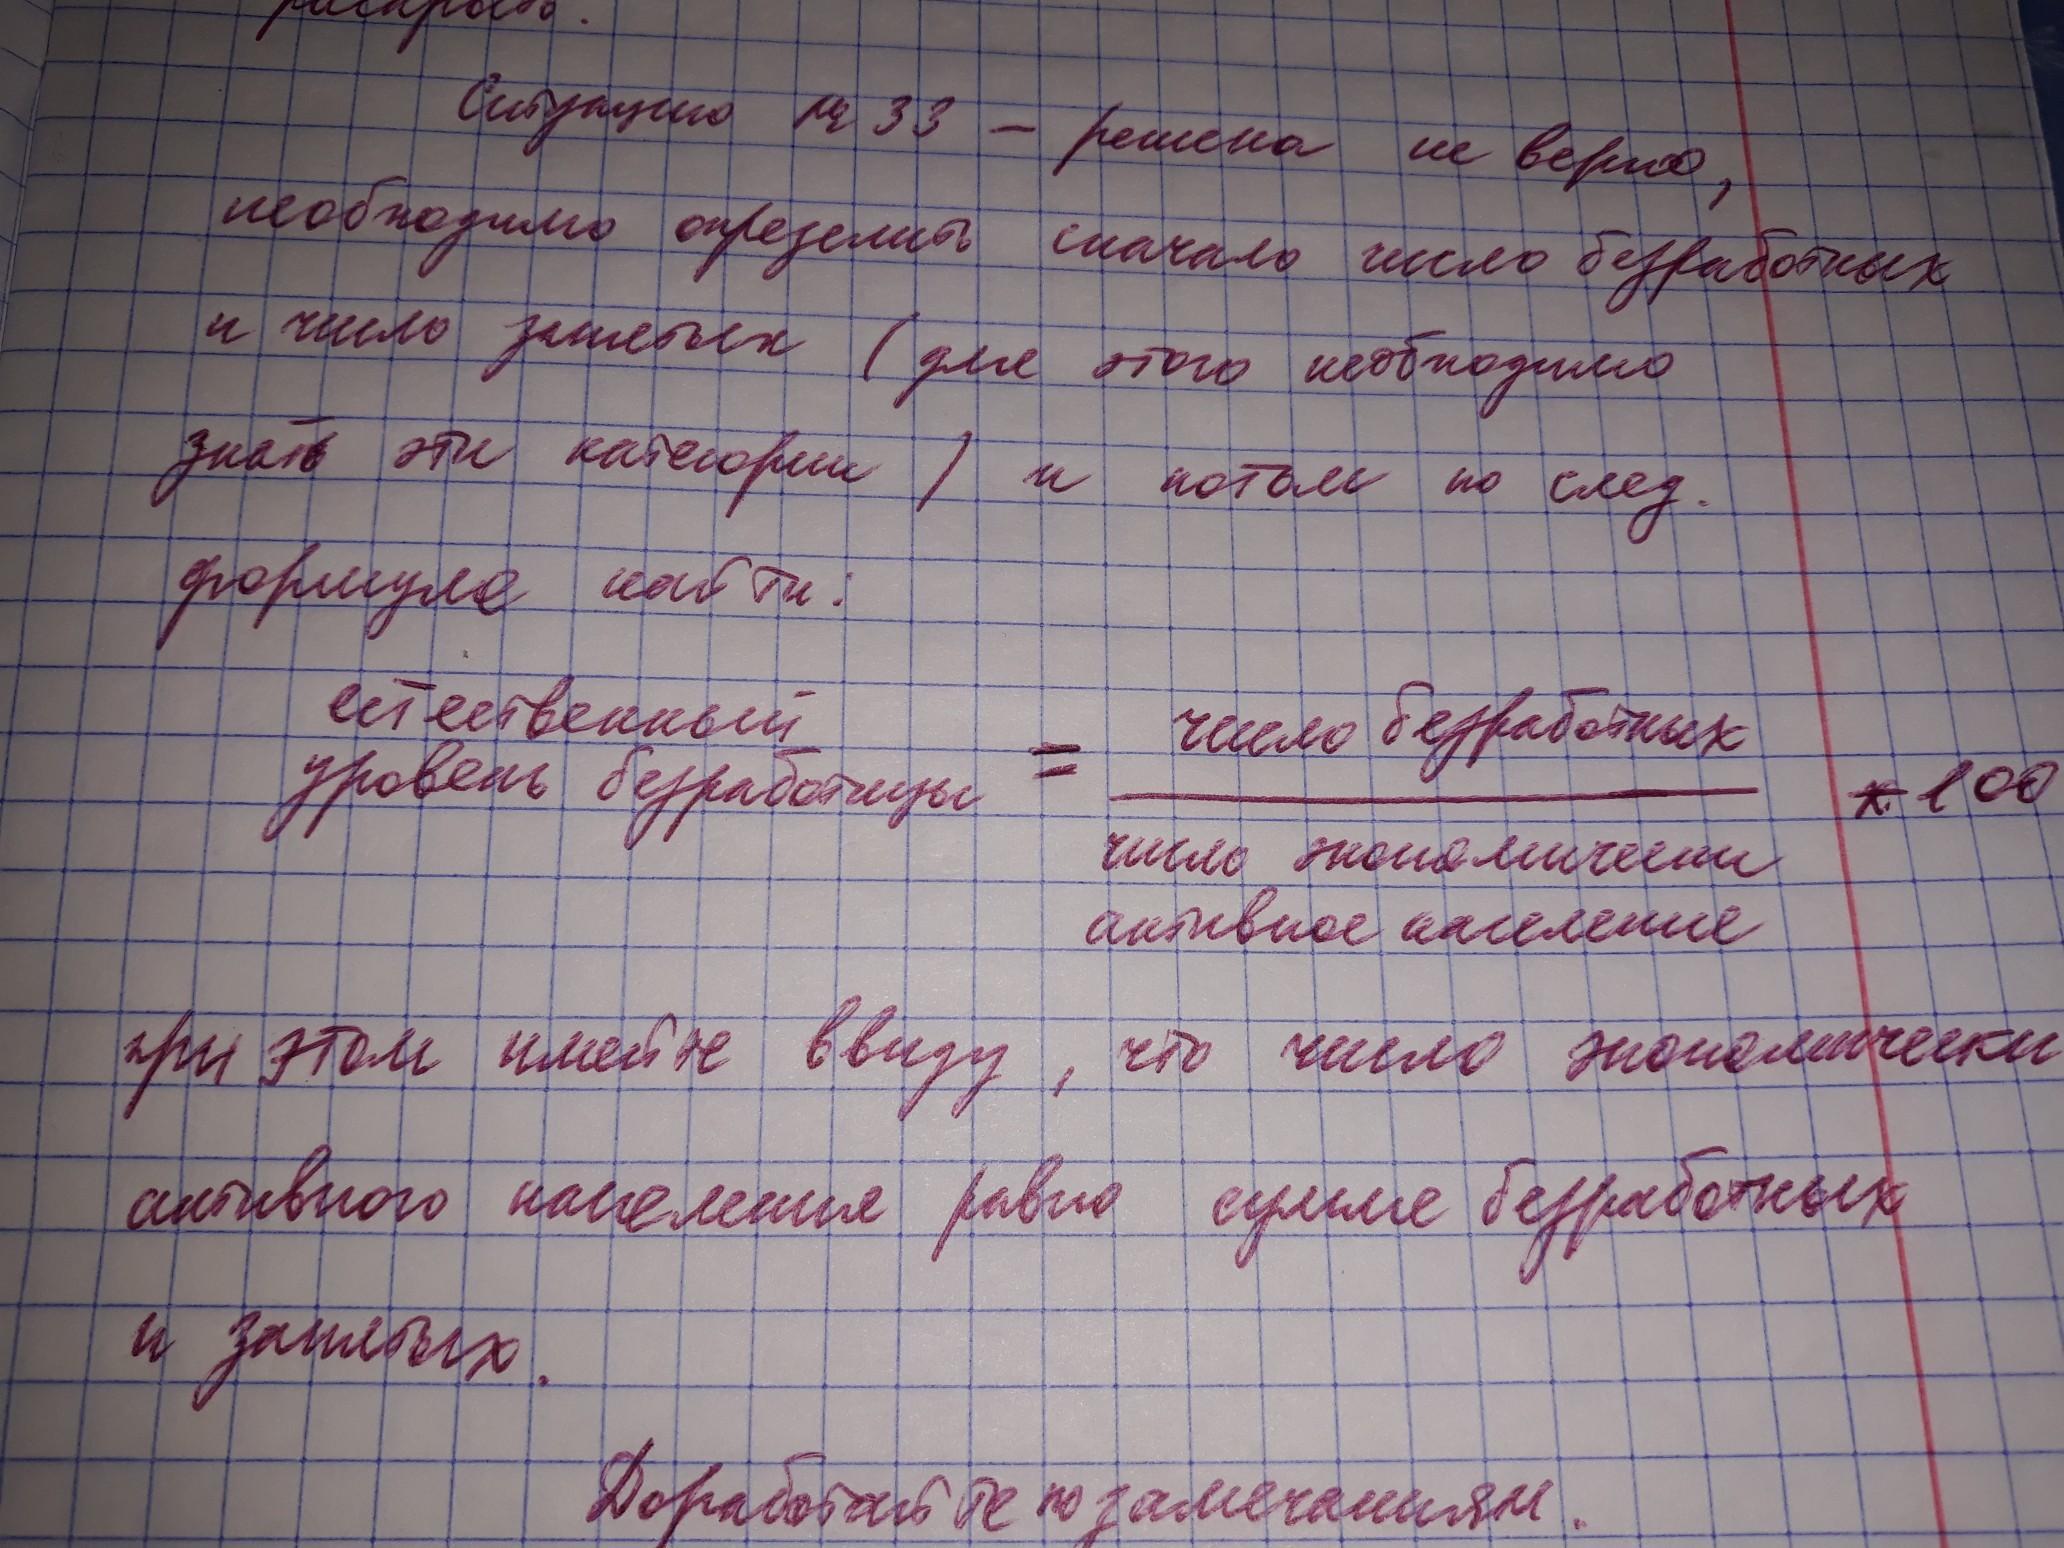 раскрыть.
Ситуацию № 33 – решена не верно,
необходимо определить сначало число безработных
и число занятых (для этого необходимо
знать эти категории) и потом по след.
формуле найти:
естественный
уровень безработицы = число безработных х 100
число экономически
активное население
при этом имейте ввиду, что число экономически
активного населения равно сумме безработных
и занятых.
Доработайте по замечаниям.